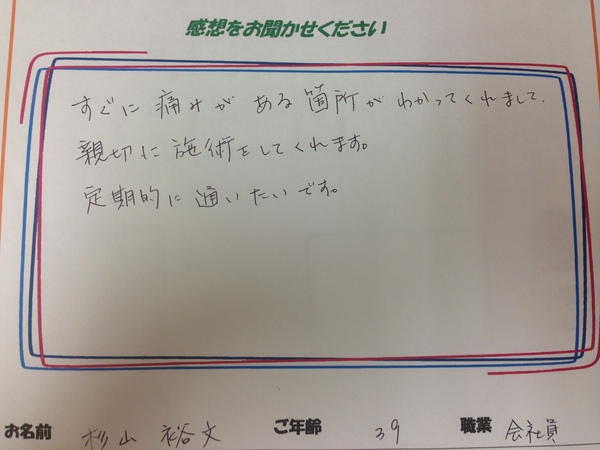 感想をお聞かせください
すぐに痛みがある箇所がわかってくれまして、
親切に施術をしてくれます。
定期的に通いたいです。
お名前 杉山 裕文 ご年齢 39 職業 会社員